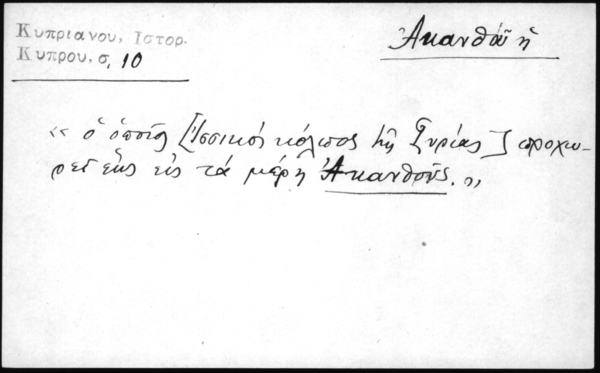 Κυπριανου, Ιστορ.
Κυπρου, σ, 10
Ἀκανθοῦ ἡ
« ὁ ὁποῖος [Ἰσσικὸς κόλπος τῆς Συρίας] προχω-
ρεῖ ἕως εἰς τὰ μέρη Ἀκανθοῦς. »